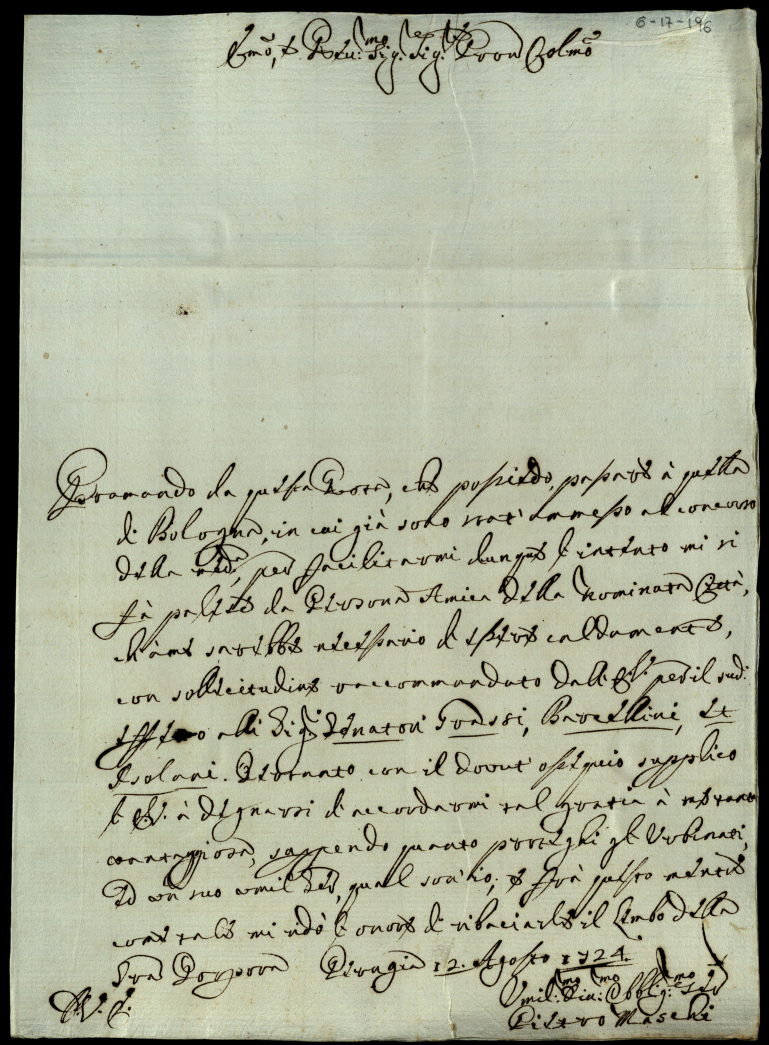 6-17-196
Emõ, e Reu:mo Sig.r Sig.r Pron Colmõ
Bramando da questa Rota, che possiedo, passare à quella
di Bologna, in cui già sono stat' ammesso al concorso
della med:, per facilitarmi dunque l'intento mi si
fà palese da Persona Amica della nominata Città,
ch'à me sarebbe necessario d'essere caldamente,
con sollecitudine raccommandato dall'E.V. per il sud:
effetto alli Sig.ri Senatori Grassi, Bavellini, et
Isolani. Pertanto con il dovut' ossequio supplico
l'E.V. à degnarsi d'accordarmi tal gratia à me tanto
vantaggiosa, sappendo quanto protegghi gl'Urbinati,
ed un suo umil Ser, qual son'io; e frà questo mentre
come tale mi dò l'onore di ribaciarle il Lembo della
Sra Porpora Perugia 12. Agosto 1724.
D.V.E.
Umil:mo Diu:mo Obblig:mo Ser
Pietro Maschi